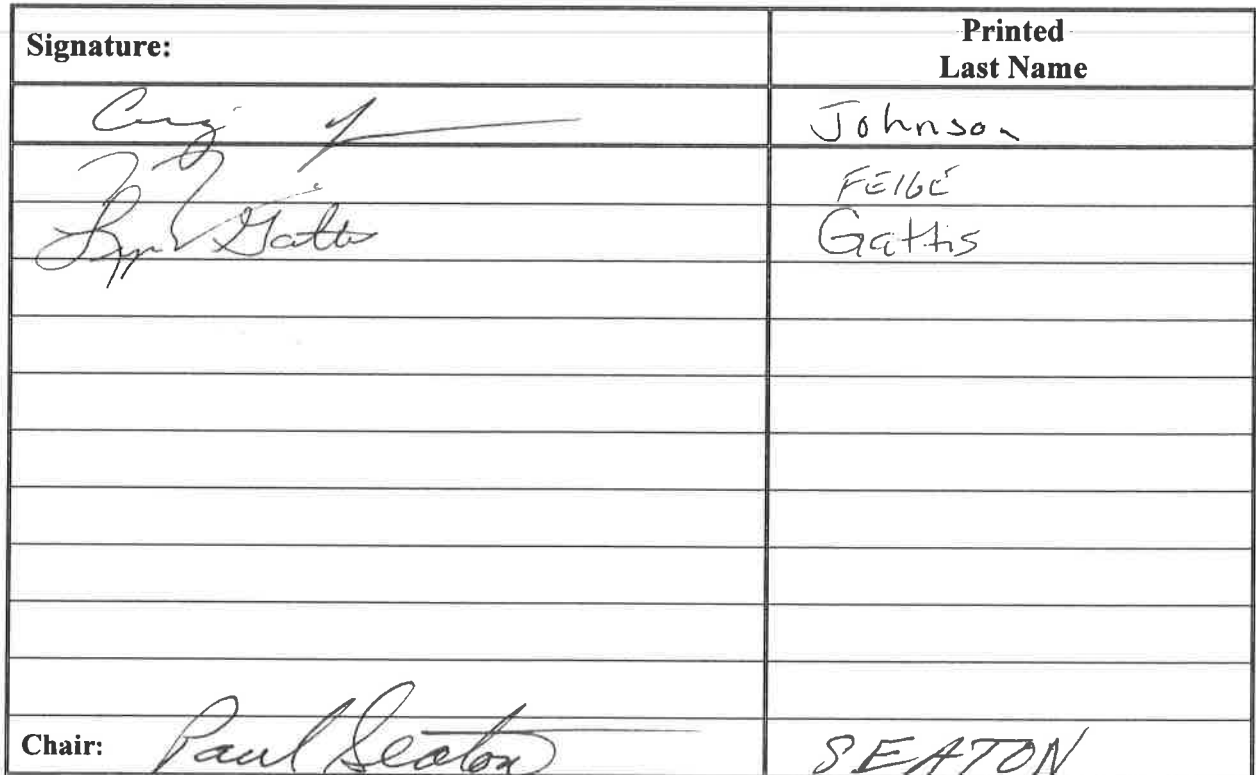 Signature:
Printed
Last Name
Johnson
FEIGE
Gattis
Gattis
Chair: Paul Seaton SEATON